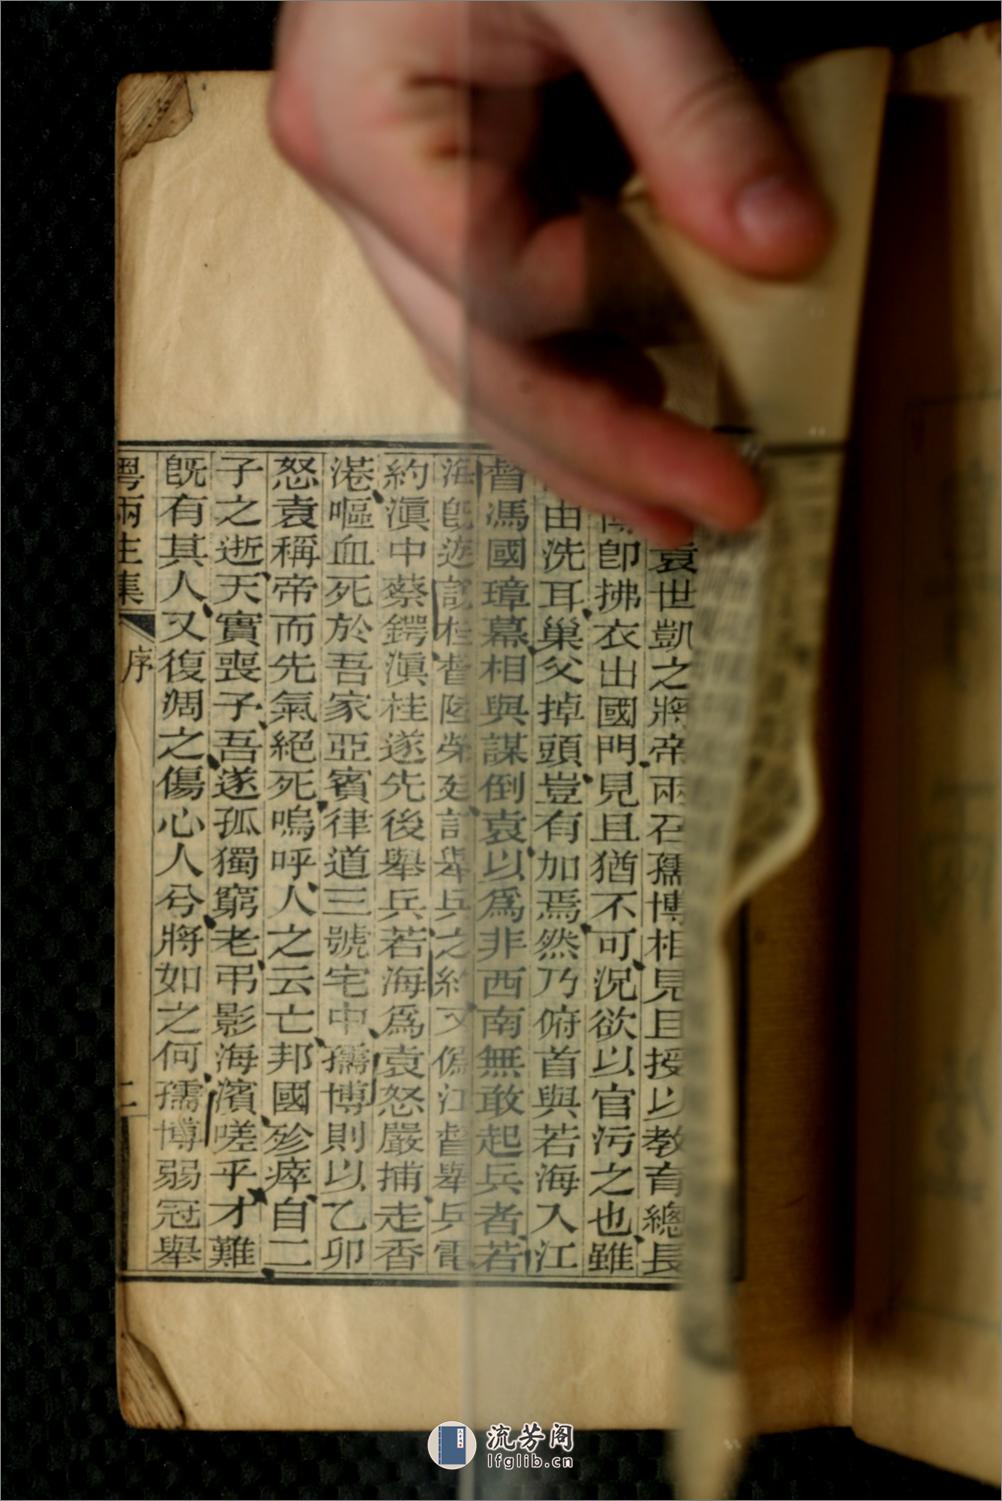 袁世凱之將帝兩召孺博相見且授以教育總長
博卽拂衣出國門見且猶不可況欲以官污之也雖
由洗耳巢父掉頭豈有加焉然乃俯首與若海入江
督馮國璋幕相與謀倒袁以爲非西南無敢起兵者若
海旣遊說桂督陸榮廷訂舉兵之約又偽江督舉兵電
約滇中蔡鍔滇桂遂先後舉兵若海爲袁怒嚴捕走香
港嘔血死於吾家亞賓律道三號宅中孺博則以乙卯
怒袁稱帝而先氣絕死嗚呼人之云亡邦國殄瘁自二
子之逝天實喪予吾遂孤獨窮老弔影海濱嗟乎才難
旣有其人又復凋之傷心人兮將如之何孺博弱冠舉
粵兩生集 序 二
流芳阁
lfglib.cn